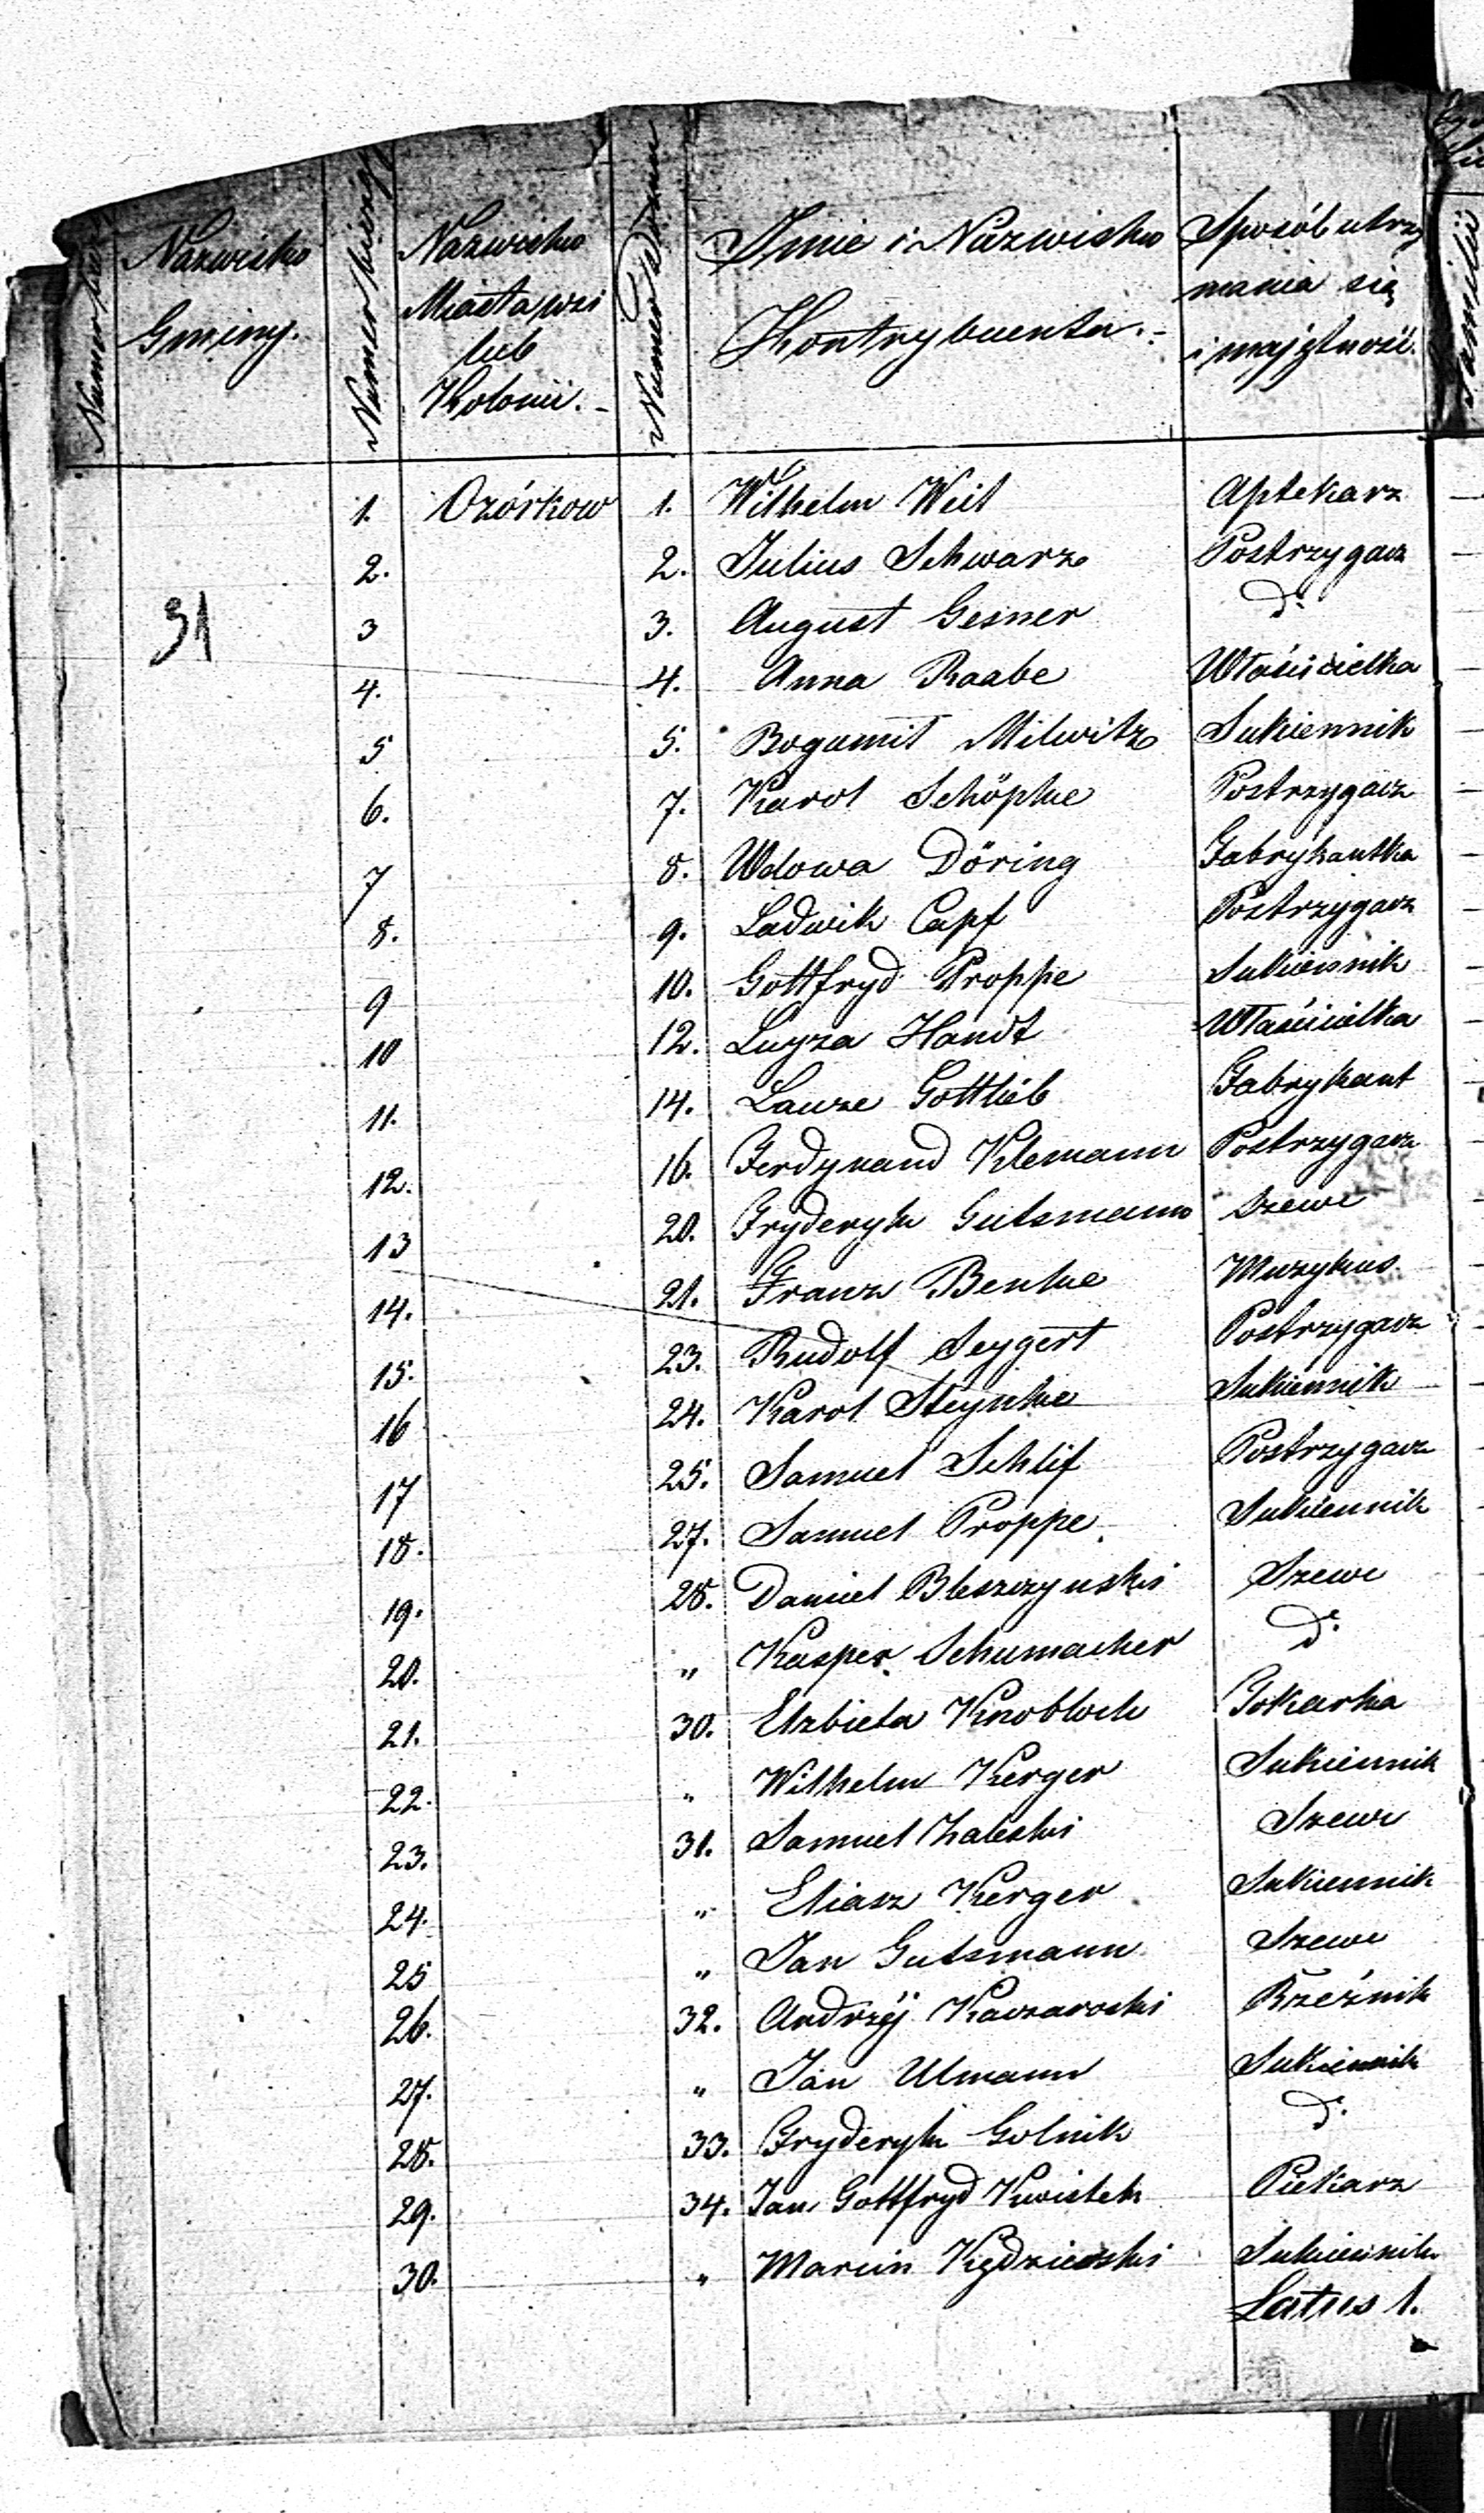 Nazwisko Gminy.
Numer bieżący
Nazwisko Miasta, wsi lub Kolonii.-
Numer Domu
Imie i Nazwisko Kontrybuenta.-
Sposób utrzymania się i majętność.
Familii
31
1. Ozórkow 1. Wilhelm Weil Aptekarz
2. 2. Julius Schwarz Postrzygacz
3 3. August Gesner do
4. 4. Anna Raabe Właścicielka
5 5. Bogumił Milwitz Sukiennik
6. 7. Karol Schöpke Postrzygacz
7 8. Wdowa Döring Fabrykantka
8. 9. Ludwik Capf Postrzygacz
9 10. Gottfryd Proppe Sukiennik
10 12. Luyza Handt Właścicielka
11. 14. Lauze Gottlieb Fabrykant
12. 16. Ferdynand Klemann Postrzygacz
13 20. Fryderyk Gutsmann Szewc
14. 21. Franz Benke Muzykus
15. 23. Rudolf Seygert Postrzygacz
16 24. Karol Steynke Sukiennik
17 25. Samuel Schlif Postrzygacz
18. 27. Samuel Proppe Sukiennik
19. 28. Daniel Bleszczynski Szewc
20. „ Kasper Schumacher do
21. 30. Elzbieta Knobloch Tokarka
22. „ Wilhelm Kerger Sukiennik
23. 31. Samuel Zaleski Szewc
24. „ Eliasz Kerger Sukiennik
25 „ Jan Gutsmann Szewc
26. 32. Andrzéj Kaczarocki Rzeźnik
27. „ Jan Ulmann Sukiennik
28. 33. Fryderyk Golnik do
29. 34. Jan Gottfryd Kwiatek Piekarz
30. „ Marcin Kędzierski Sukiennik
Latus 1.